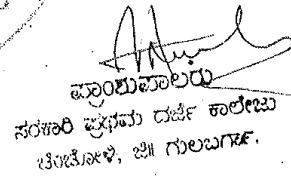 ಪ್ರಾಂಶುಪಾಲರು
ಸರಕಾರಿ ಪ್ರಥಮ ದರ್ಜೆ ಕಾಲೇಜು
ಚಿಂಚೋಳಿ, ಜಿ॥ ಗುಲಬರ್ಗಾ.